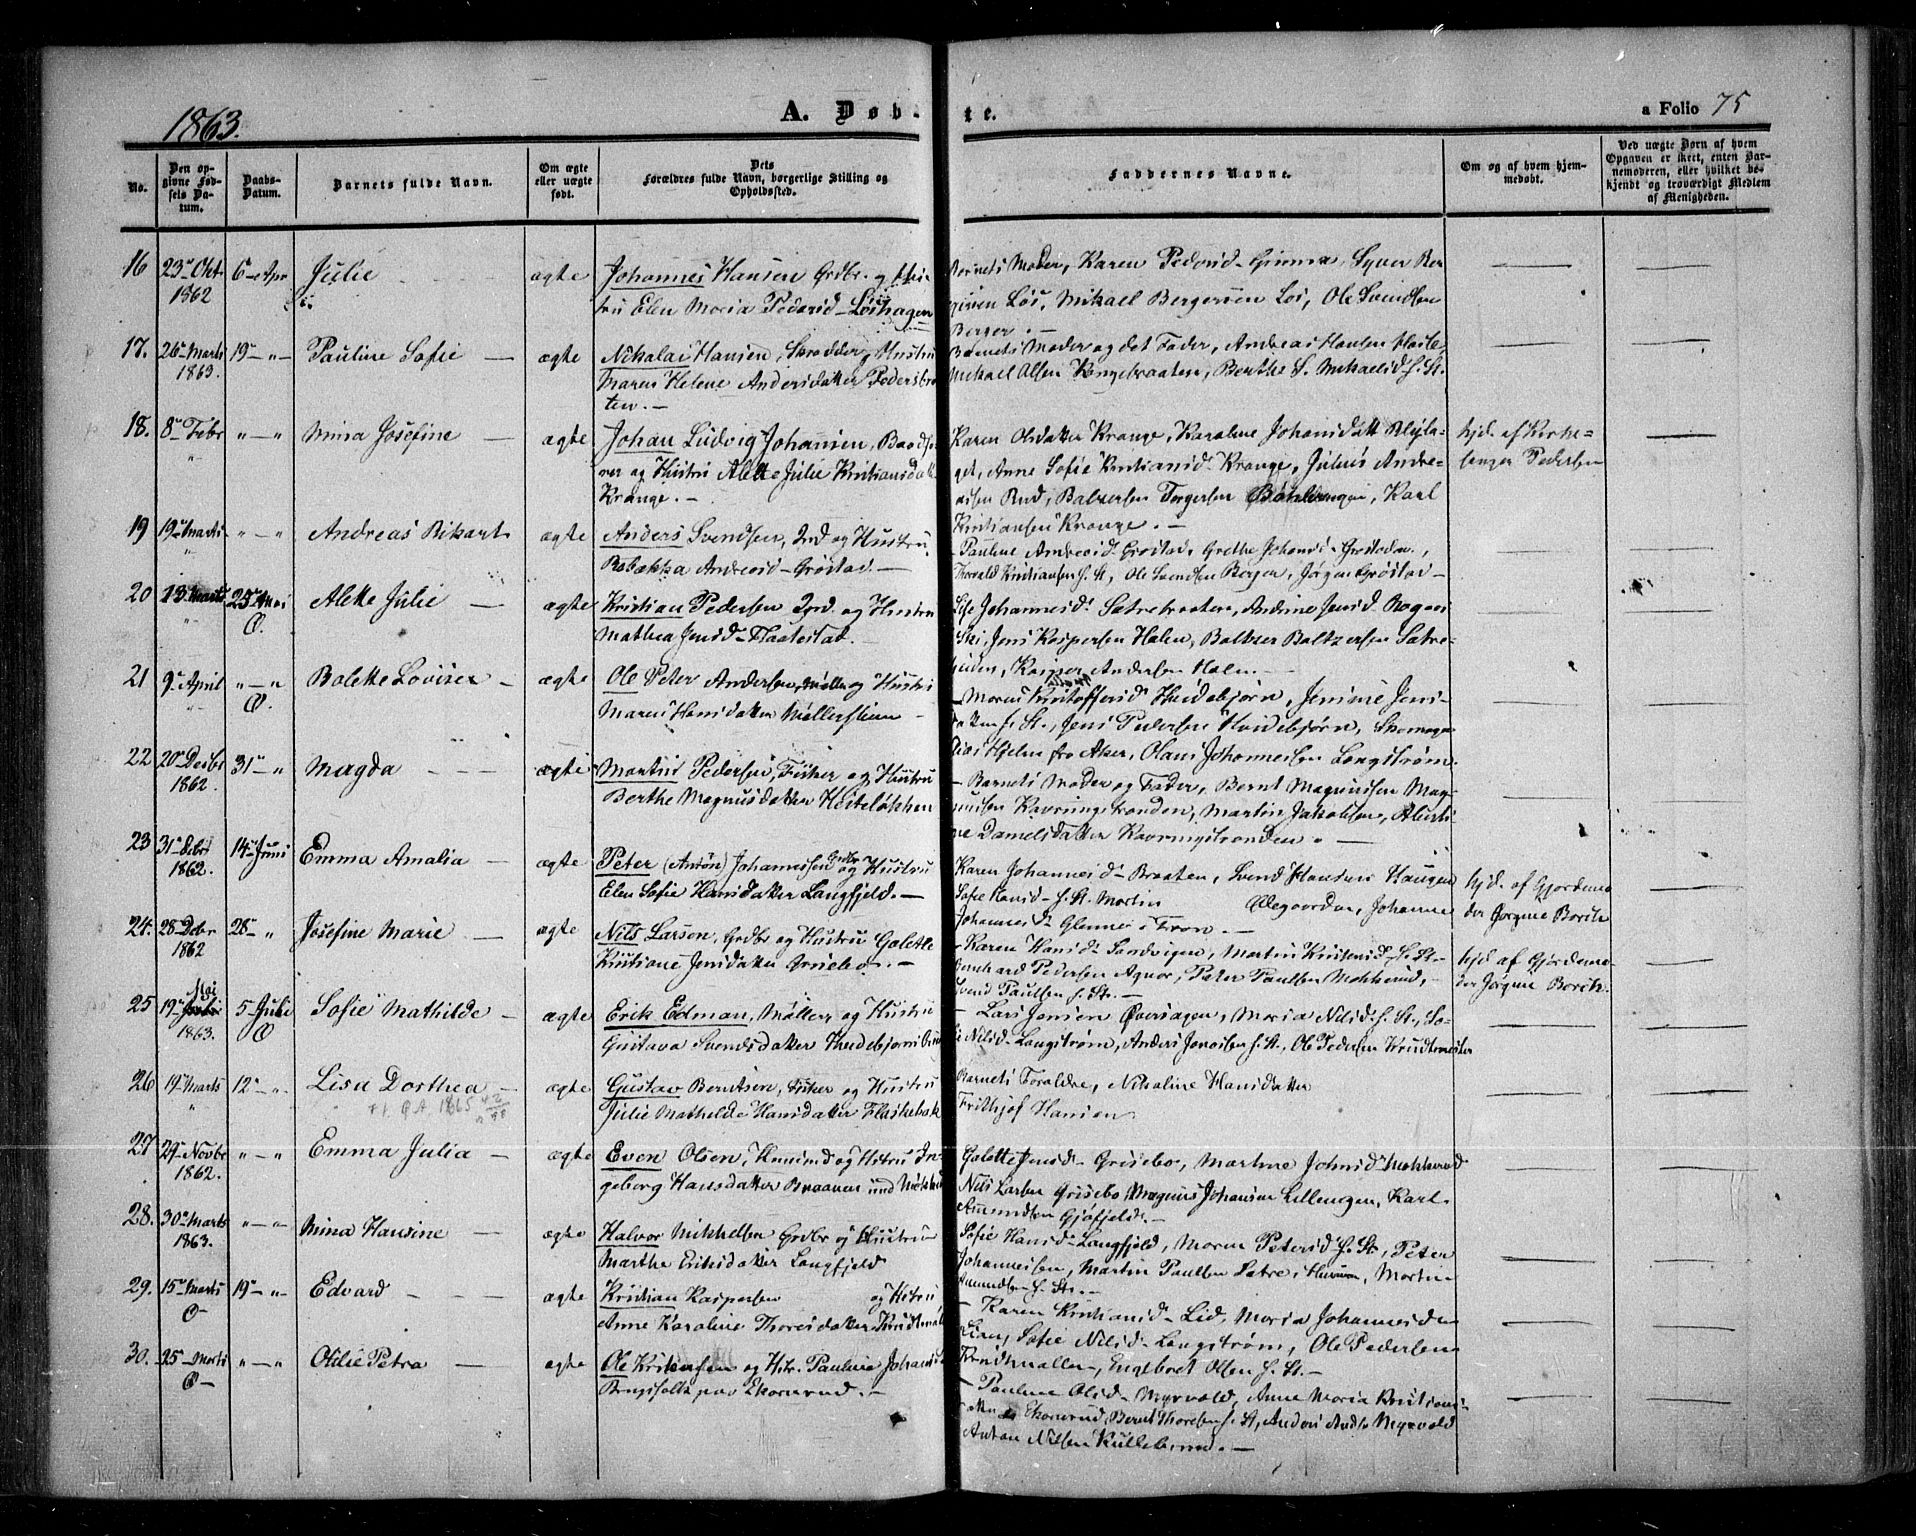 1863.
A. Døb-
te.
a Folio 75
No.
Den op-
givne Fød-
sels Da-
tum.
Daabs-
Datum.
Barnets fulde Navn.
Om ægte
eller uægte
født.
Dets
Forældres fulde Navn, borgerlige Stilling og
Opholdssted.
Faddernes Navne.
Om og af hvem hjem-
medøbt.
Ved uægte Børn af hvem
Opgaven er skeet, enten Bar-
nemoderen, eller hvilket be-
kjendt og troværdigt Medlem
af Menigheden.
16 23 Okt 6 Apr Julie ægte Johannes Hansen Grdbr. og Hus-
1862 tru Elen Maria Pedersd Løshagen
Barnets Moder, Karen Pedersd Grimsa, Syver Ber
Løs, Mikael Bergersen Løs, Ole Svendsen
Berger.
17. 26 Marts 19 " Pauline Sofie ægte Nikolai Hansen, Skrædder og Hustru
1863. Maren Helene Andersdatter Pedersbra
ten.
Barnets Moder og det Fader, Andreas Hansen Hasle,
Mikael Olsen Kongebraaten, Berthe S. Mikaelsd f. St.
18. 8 Febr " " Mina Josefine ægte Johan Ludvig Johansen, Baadsfø
rer og Hustru Alette Julie Kristiansdatt
Krange.
Karen Olsdatter Krange, Karoline Johansdatt Blejla
get, Anne Sofie Kristiansd Krange, Julius Andre-
asen Rud, Baltersen Torgersen, Karl
Kristiansen Krange.
hjd. af Kirke-
sanger Pedersen
19 19 Marts " " Andreas Rikart ægte Anders Svendsen, Ind og Hustru
Rebækka Andreasd Grøstad.
Pauline Andreasd Grøstad, Grethe Johansd Grøstaden,
Thorvald Kristiansen f. St, Ole Svendsen Berger, Jørgen Grøstad
20 13 Marts 25 Mai Alette Julie ægte Kristian Pedersen Ind. og Hustru
Mathea Jensd Flaatestad.
Lise Johannesd Sætrebraaten, Andrine Jensd
Ski, Jens Kaspersen Halen, Baltzer Baltzersen Sætre-
Kasper Andersen Halen.
21 9 April " " Bolette Lovise ægte Ole Peter Andersen, Møller og Hustru
Maren Hansdatter Møllerstuen
Maren Kristoffersd Hvidebjørn, Jensine Jens-
datter f. St., Jens Pedersen Hvidebjørn, Skomager
Hjelm fra Aker, Olaus Johannessen Langstrøm.
22 20 Decbr 31 " Magda ægte Martin Pedersen, Fisker og Hustru
1862. Berthe Magnusdatter Hesteløkken
Barnets Moder og Fader, Bernt Magnussen Mag-
nussen Kavringstranden, Martin Jakobsen, Alberti-
ne Danielsdatter Kavringstranden.
23 31 Debr 14 Juni Emma Amalia ægte Peter (Anton) Johannessen Grdbr og Hustru
1862. Elen Sofie Hansdatter Langfjeld.
Karen Johannesd Braaten, Svend Hansen Haugen
Sofie Hansd f. St. Martin Ollegaarden, Johanne
Johannesd Glenne i Tron.
hjd. af Gjordemo
der Jørgine Borck
24. 28 Debr 28 " Josefine Marie ægte Nils Larsen, Grdbr og Hustru Galette
1862 Kristiane Jensdatter Grisebo.
Karen Hansd Sandvigen, Martin Kristensd f. St
Bernhard Pedersen Agnor, Peter Paulsen Mokkerud,
Svend Paulsen f. St.
hjd af Gjordemo
der Jørgine Borck.
25 19 Mai 5 Juli Sofie Mathilde ægte Erik Edman, Møller og Hustru
1863. Gustava Svendsdatter
Lars Jensen Øversagen, Maria Nilsd f. St., So-
fie Nilsd Langstrøm, Anders Jonassen f. St, Ole Pedersen Krudtmester
26 19 Marts 12 " Lisa Dorthea ægte Gustav Berntsen, Fisker og Hustru
1865 Julie Mathilde Hansdatter Flaskebæk
Barnets Forældre, Nikoline Hansdatter
Frithjof Hansen
27 29 Novbr " " Emma Julia ægte Even Olsen, Husmd og Hstru In-
1862. geborg Hansdatter Braanen und
Galette Jensd Grisebo, Martine Johnsd Mokkerud
Nils Larsen Grisebo, Magnus Johansen Lillengen, Karl
Amundsen Gjøfjeld.
28. 30 Marts " " Mina Hansine ægte Halvor Mikkelsen Grdbr og Hustru
1863. Marthe Eriksdatter Langfjeld
Sofie Hansd Langfjeld, Maren Petersd f. St, Peter
Johannessen, Martin Paulsen Sætre i Hurum, Martin
Amundsen f. St.
29. 15 Marts 19 " Edvard ægte Kristian Kaspersen og Hstru
Anne Karoline Thoresdatter Krudtmøl
Karen Kristiansd Lid, Maria Johannesd
Lian, Sofie Nilsd Langstrøm, Ole Pedersen
Krudtmøllen, Engebret Olsen f. St.
30. 25 Marts " " Otilie Petra ægte Ole Kristiansen og Hstr. Pauline Johansd
Brugsfolk paa Ekornrud.
Pauline Olsd Myrvold, Anne Maria Kristians-
Ekornrud, Bernt Thoresen f. St, Anders Myrvold
Anton Nilsen Kullebund.